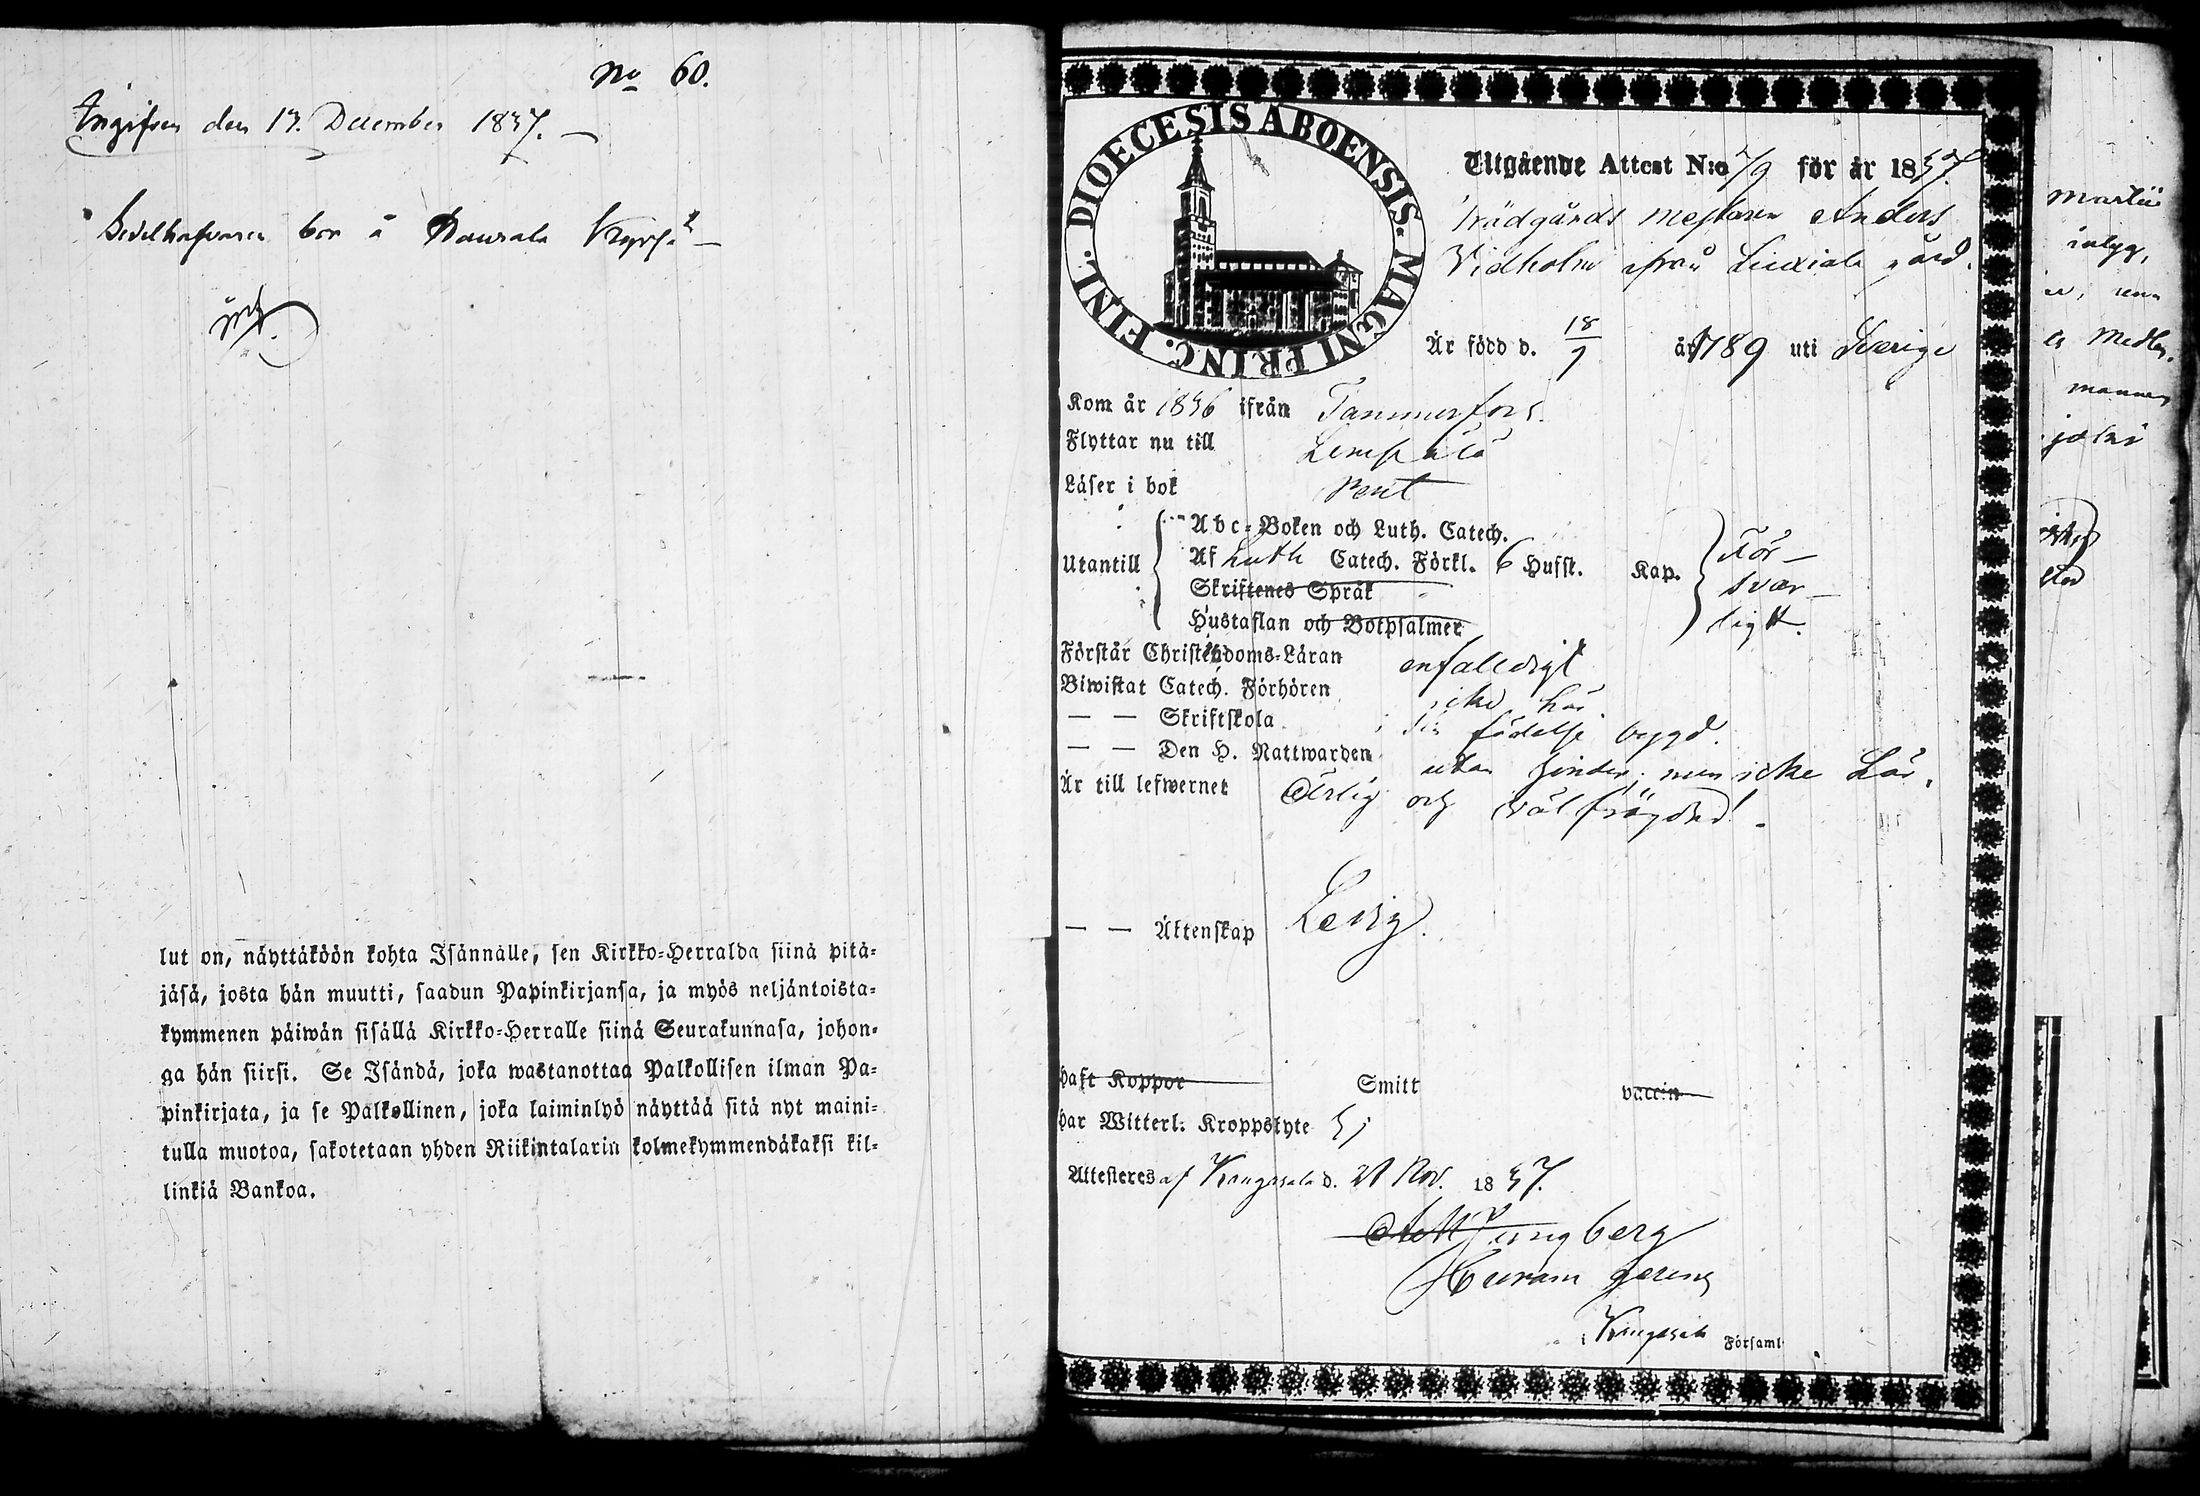 No 60.
Ingifven den 17. December 1837.
Sedelhafvaren bor å
lut on, näyttäköön kohta Isännälle, sen Kirkko-Herralda siinä pitä-
jäsä, josta hän muutti, saadun Papinkirjansa, ja myös neljäntoista-
kymmenen päiwän sisällä Kirkko-Herralle siinä Seurakunnasa, johon-
ga hän siirsi. Se Isändä, joka wastanottaa Palkollisen ilman Pa-
pinkirjata, ja se Palkollinen, joka laiminlyö näyttää sitä nyt maini-
tulla muotoa, sakotetaan yhden Riikintalarin kolmekymmendäkaksi kil-
linkiä Bankoa.
DIOECESIS ABOENSIS. MAGNI PRINC. FINL.
Utgående Attest N:o för år 1837
Trädgårds mestaren Anders
Vidholm ifrån Liuxiala gård.
Är född d. 18/7 år 1789 uti Sverige
Kom år 1836 ifrån Tammerfors.
Flyttar nu till Lempälä
Läser i bok rent
Abc-Boken och Luth. Catech.
Utantill Af Luth Catech. Förkl. 6 Hufst. Kap. För-
Skriftenes Språk svar-
Hustaflan och Botpsalmer ligt.
Förstår Christendoms-Läran enfalldigt
Biwistat Catech. Förhören icke här
— — Skriftskola i sin födelse bygd.
— — Den H. Nattwarden utan hinder, men icke här.
Är till lefwernet Ärlig och välfrägdad.
— — Äktenskap Ledig.
Haft Koppor Smitt vaccin
Har Witterl. Kroppslyte Ej
Attesteras af Kangasala d. 21 Nov. 1837.
Ljungberg
i Kangasala Församl.